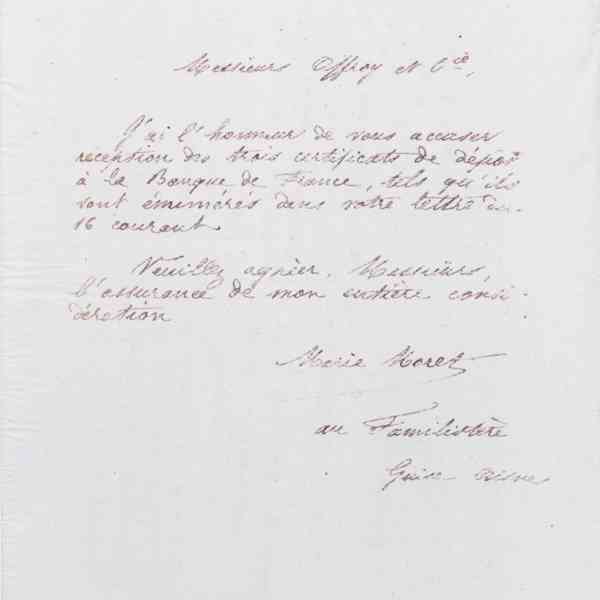 Messieurs Offroy et Cie,
J'ai l'honneur de vous accuser
réception des trois certificats de dépôt
à la Banque de France, tels qu'ils
sont énumérés dans votre lettre du
16 courant.
Veuillez agréer, Messieurs,
l'assurance de mon entière consi-
dération
Marie Moret
au Familistère
Guise Aisne